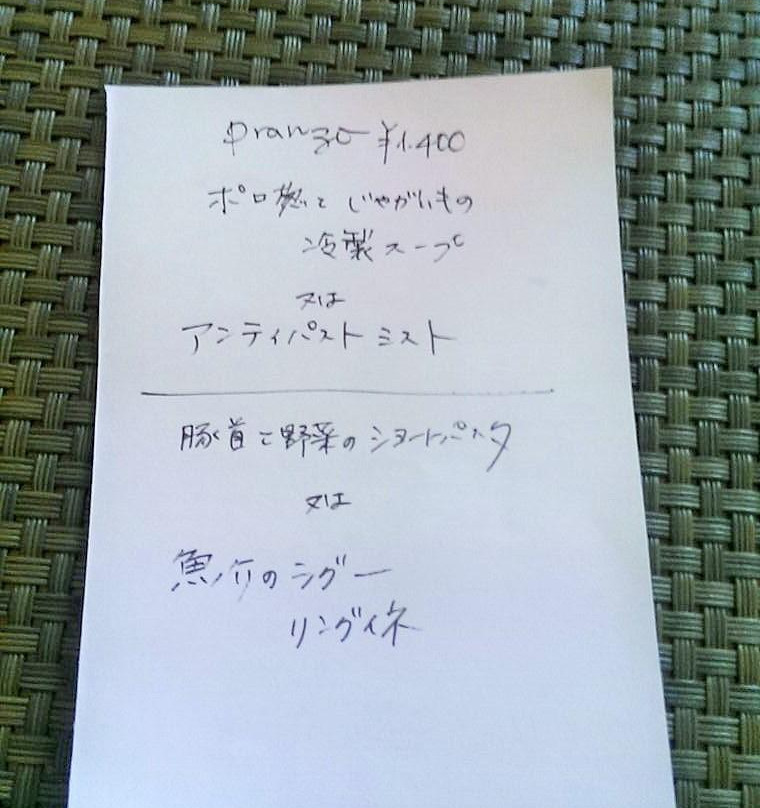 pranzo ¥1.400
ポロ葱とじゃがいもの
冷製スープ
又は
アンティパストミスト
豚首と野菜のショートパスタ
又は
魚介のラグー
リングイネ